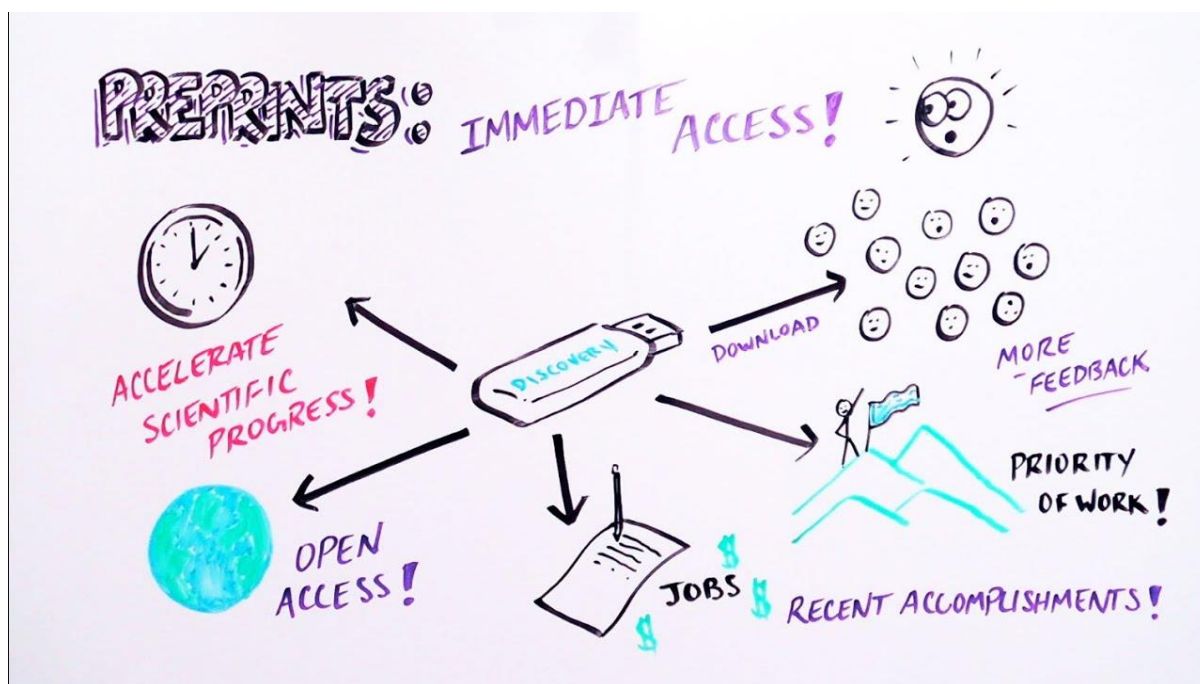 PREPRINTS:
IMMEDIATE
ACCESS!
ACCELERATE
SCIENTIFIC
PROGRESS!
DISCOVERY
DOWNLOAD
MORE
FEEDBACK
PRIORITY
OF WORK!
OPEN
ACCESS!
JOBS
$
$
$
RECENT ACCOMPLISHMENTS!